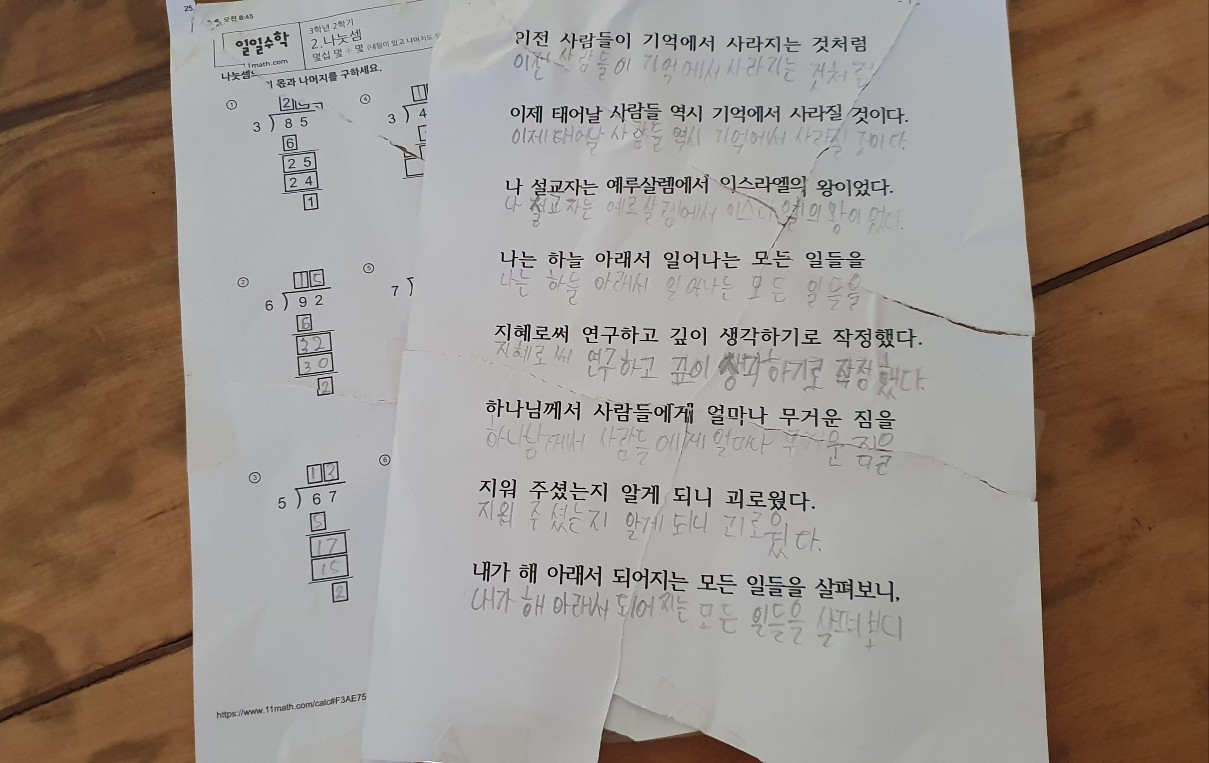 25.
오전 8:45
일일수학
11math.com
3학년 2학기
2.나눗셈
몇십 몇 ÷ 몇 (내림이 있고 나머지도
몫과 나머지를 구하세요.
①
2
3 ) 8 5
6
2 5
2 4
1
④
3 ) 4
②
1 5
6 ) 9 2
6
3 2
3 0
2
⑤
7 )
③
1 3
5 ) 6 7
5
1 7
1 5
2
⑥
https://www.11math.com/calc#F3AE75
이전 사람들이 기억에서 사라지는 것처럼
이전 사람들이 기억에서 사라지는 것처럼
이제 태어날 사람들 역시 기억에서 사라질 것이다.
이제 태어날 사람들 역시 기억에서 사라질 것이다.
나 설교자는 예루살렘에서 이스라엘의 왕이었다.
나 설교자는 예루살렘에서 이스라엘의 왕이었다.
나는 하늘 아래서 일어나는 모든 일들을
나는 하늘 아래서 일어나는 모든 일들을
지혜로써 연구하고 깊이 생각하기로 작정했다.
지혜로써 연구하고 깊이 생각하기로 작정했다.
하나님께서 사람들에게 얼마나 무거운 짐을
하나님께서 사람들에게 얼마나 무거운 짐을
지워 주셨는지 알게 되니 괴로웠다.
지워 주셨는지 알게 되니 괴로웠다.
내가 해 아래서 되어지는 모든 일들을 살펴보니,
내가 해 아래서 되어지는 모든 일들을 살펴보니